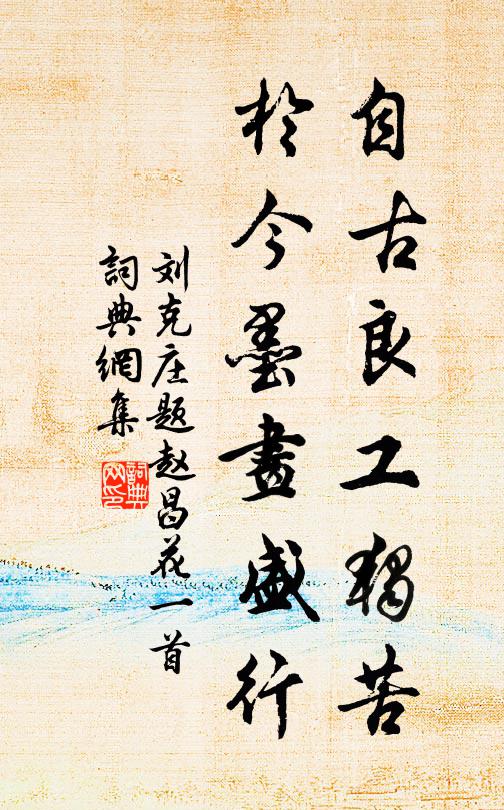 自古良工獨苦
於今墨畫盛行
刘克庄题赵昌花一首
詞典網集
詞典網印